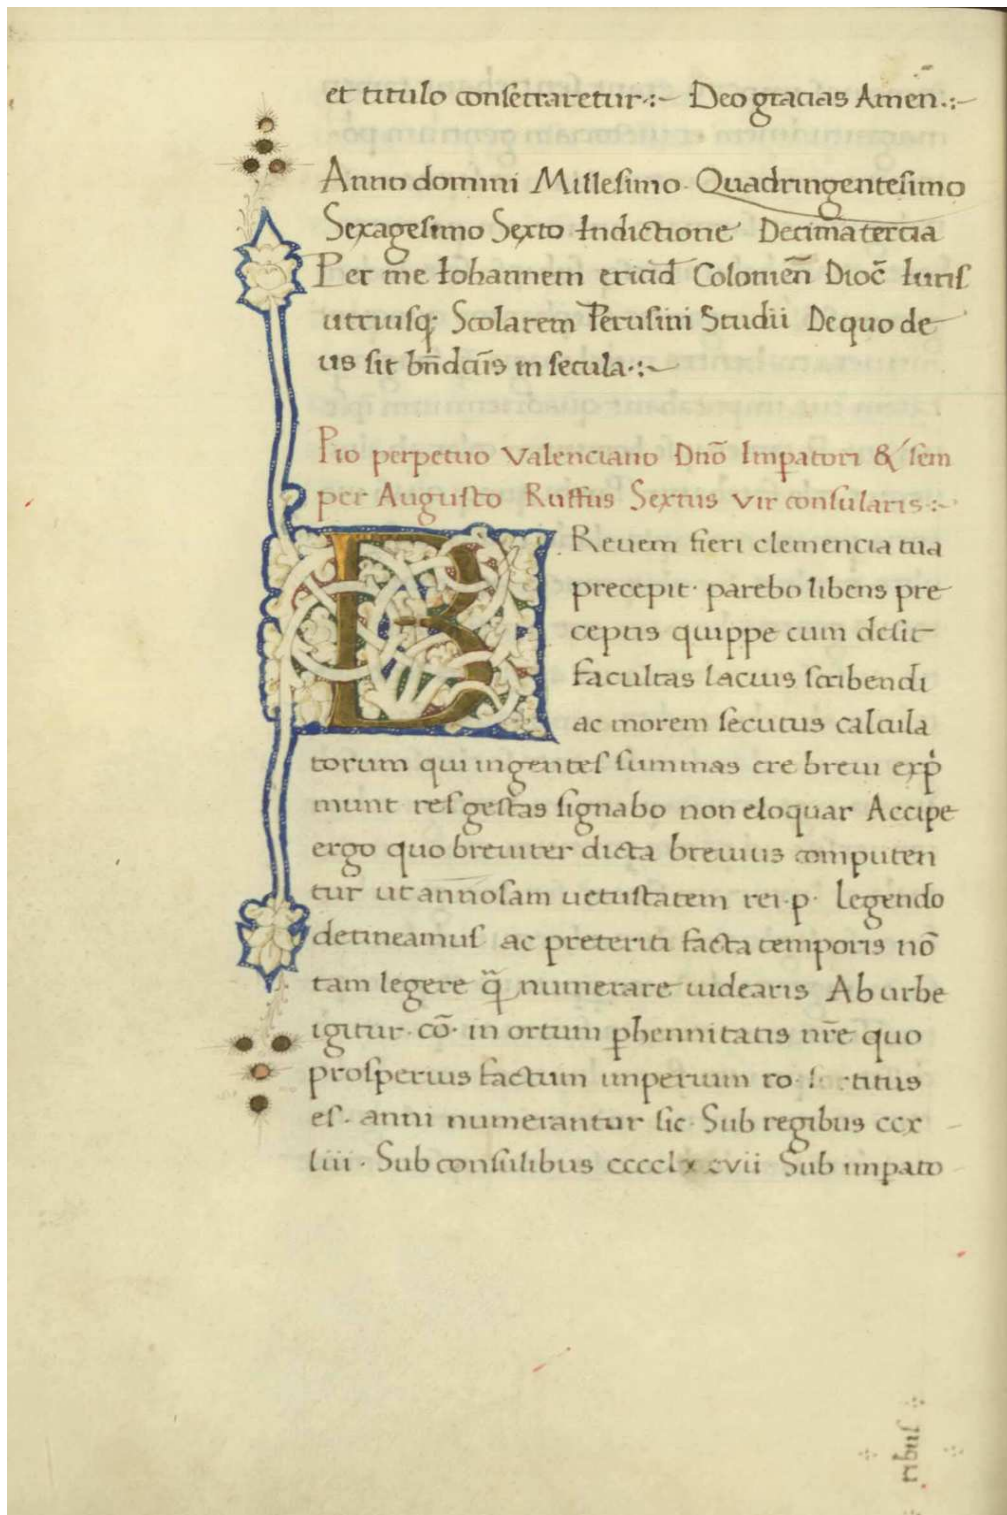 et titulo consecraretur·:~ Deo gracias Amen̄.:~
Anno domini Millesimo· Quadringentesimo
Sexagesimo Sexto Indictione Decimatercia
Per me Iohannem Colonien̄ Dioc̄ Iuris
utriusq; Scolarem Perusini Studii De quo de
us sit bn̄dc̄is in secula·:~
Pio perpetuo Valenciano Dn̄o Imꝑatori & sem
per Augusto Ruffus Sextus vir consularis:~
BReuem fieri clemencia tua
precepit· parebo libens pre
ceptis quippe cum desit
facultas lacius scribendi
ac morem secutus calcula
torum qui ingentes summas ere breui exp̍
munt res gestas signabo non eloquar Accipe
ergo quo breuiter dicta breuius computen
tur ut annosam uetustatem rei·p· legendo
detineamus ac preteriti facta temporis nō
tam legere q̄ numerare uidearis Ab urbe
igitur· cō· in ortum phennitatis nr̄e quo
prosperius factum imperium ro· titus
es· anni numerantur sic· Sub regibus ccx
liii· Sub consulibus Sub imꝑato
ribus